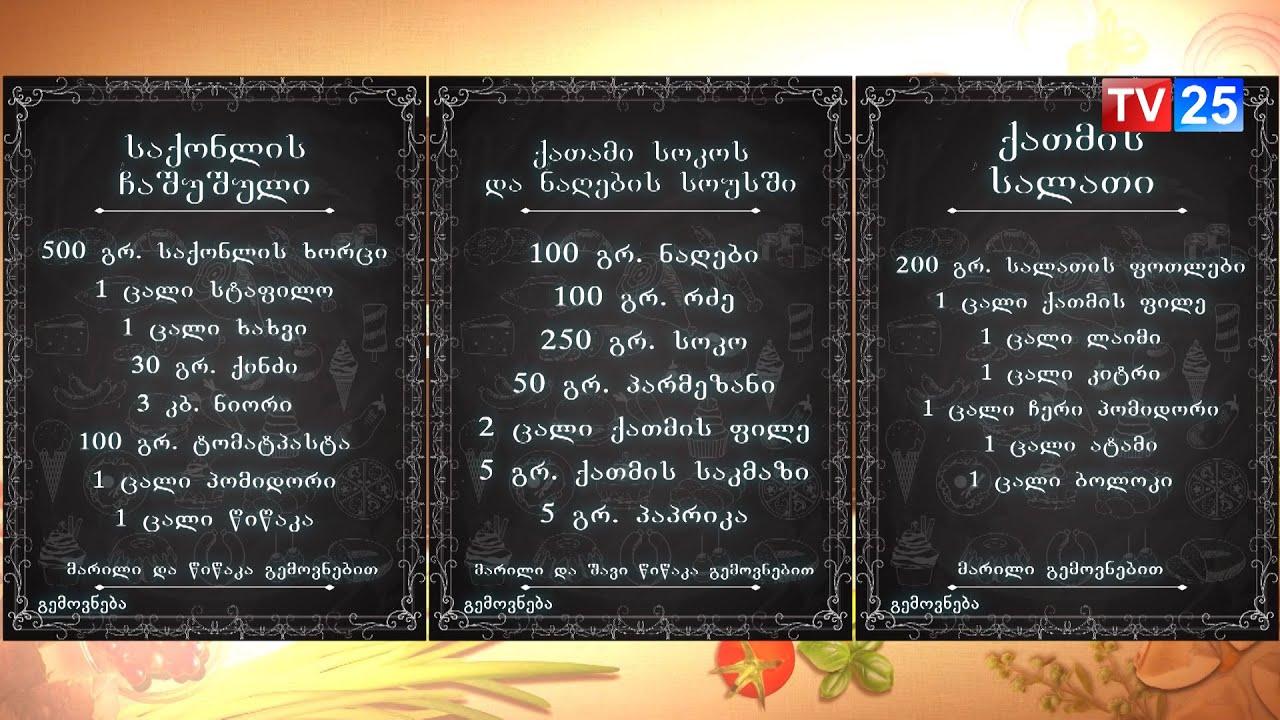 TV 25
საქონლის
ჩაშუშული
500 გრ. საქონლის ხორცი
1 ცალი სტაფილო
1 ცალი ხახვი
30 გრ. ქინძი
3 კბ. ნიორი
100 გრ. ტომატპასტა
1 ცალი პომიდორი
1 ცალი წიწაკა
მარილი და წიწაკა გემოვნებით
გემოვნება
ქათამი სოკოს
და ნაღების სოუსში
100 გრ. ნაღები
100 გრ. რძე
250 გრ. სოკო
50 გრ. პარმეზანი
2 ცალი ქათმის ფილე
5 გრ. ქათმის საკმაზი
5 გრ. პაპრიკა
მარილი და შავი წიწაკა გემოვნებით
გემოვნება
ქათმის
სალათი
200 გრ. სალათის ფოთლები
1 ცალი ქათმის ფილე
1 ცალი ლაიმი
1 ცალი კიტრი
1 ცალი ჩერი პომიდორი
1 ცალი ატამი
1 ცალი ბოლოკი
მარილი გემოვნებით
გემოვნება